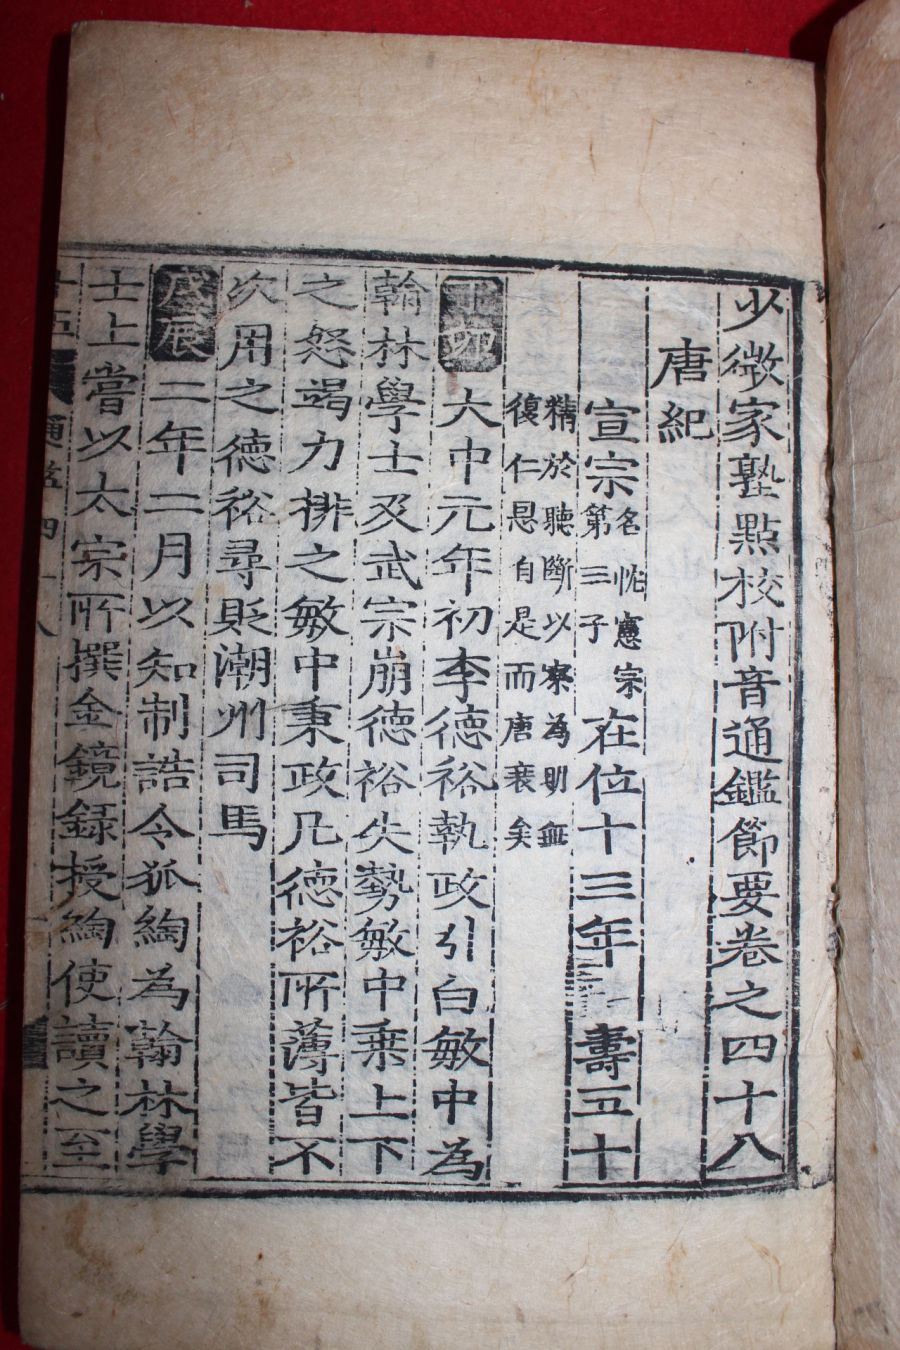 少微家塾點校附音通鑑節要卷之四十八
唐紀
宣宗名忱憲宗第三子在位十三年壽五十
精於聽斷以察爲明無
復仁恩自是而唐衰矣
丁卯大中元年初李德裕執政引白敏中為
翰林學士及武宗崩德裕失勢敏中乗上下
之怒竭力排之敏中秉政凡德裕所薄皆不
次用之德裕尋貶潮州司馬
戊辰二年二月以知制誥令狐綯為翰林學
士上嘗以太宗所撰金鏡録授綯使讀之至
通鑑四十八